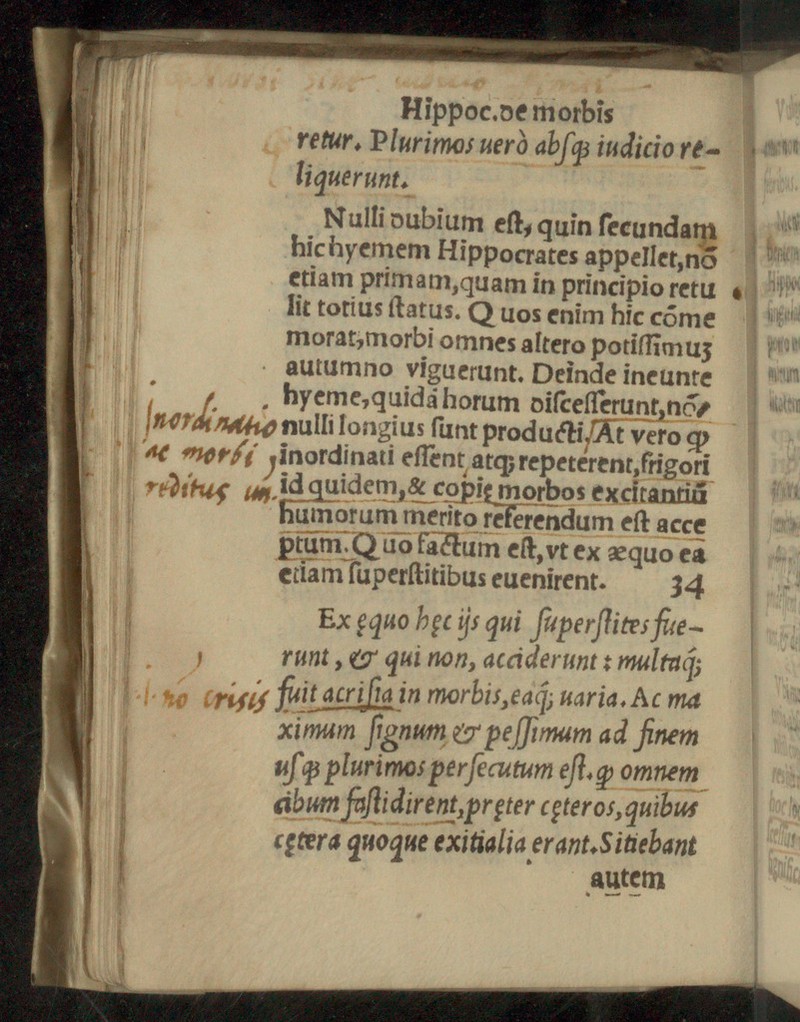 Hippoc.de morbis
retur. Plurimos uerò absq; iudicio re-
liquerunt.
Nulli dubium est, quin secundam
hic hyemem Hippocrates appellet,nõ
etiam primam,quam in principio retu
lit totius status. Quos enim hic cõme
morat,morbi omnes altero potissimuʒ
autumno viguerunt. Deinde ineunte
hyeme,quidã horum discesserunt,nõ
nulli longius sunt producti. At vero ꝙ
inordinati essent atq; repeterent,frigori
id quidem,& copię morbos excitantiũ
humorum merito referendum est acce
ptum. Quo factum est, vt ex æquo ea
etiam superstitibus euenirent. 34
Ex ęquo hęc ijs qui superstites fue-
runt, & qui non, acciderunt : multaq́;
fuit acrisia in morbis,eaq́; uaria. Ac ma
ximum signum & pessimum ad finem
usq; plurimos persecutum est.ꝙ omnem
cibum fastidirent,pręter cęteros,quibus
cętera quoque exitialia erant.Sitiebant
autem
Inordinatio
ac morbi
reditus
no crisis